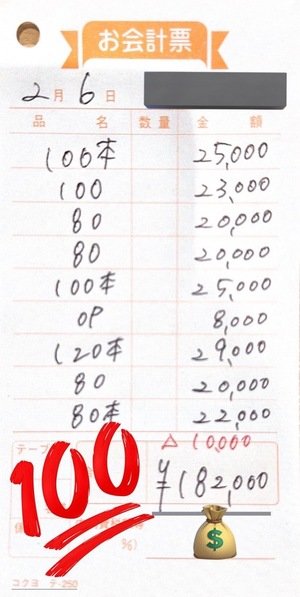 お会計票
2月6日
品名 数量 金額
100本 25,000
100 23,000
80 20,000
80 20,000
100本 25,000
OP 8,000
120本 29,000
80 20,000
80本 22,000
△ 10,000
テーブ
¥182,000
100
%)
コクヨ テ-250